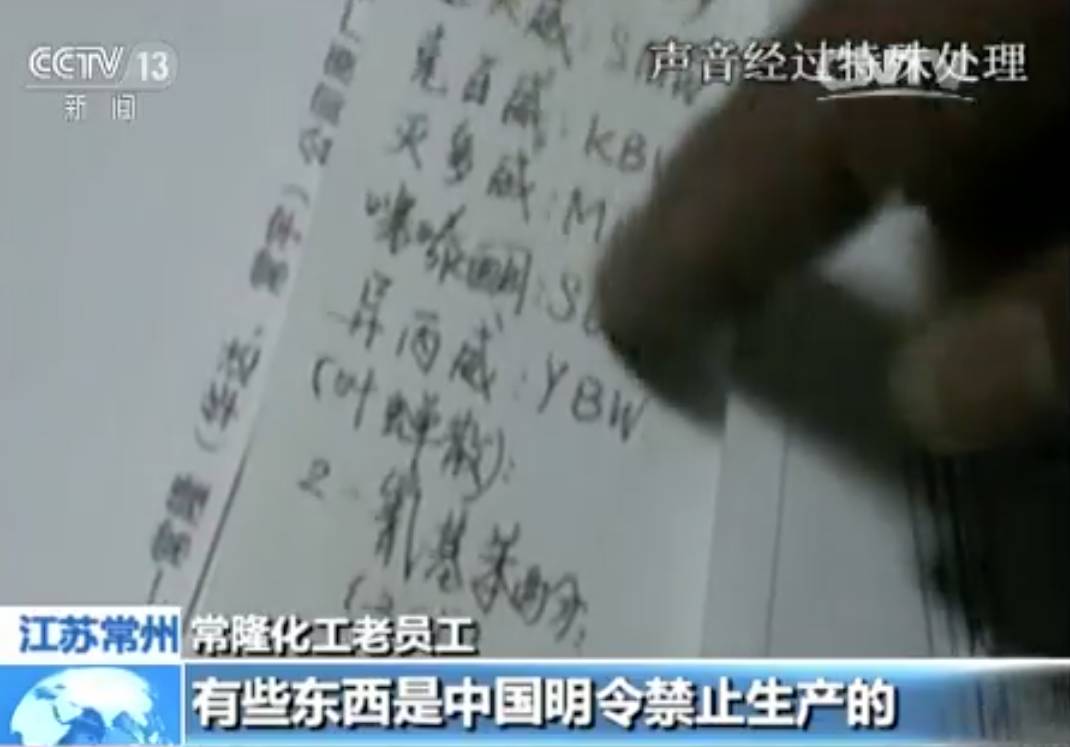 CCTV 13
新闻
声音经过特殊处理
威: S
克百威: KB
灭多威: M
咪唑酮: S
异丙威: YBW
(叶蝉散):
2. 氰基苯酚;
常隆(华达、常宇)公司
江苏常州 常隆化工老员工
有些东西是中国明令禁止生产的